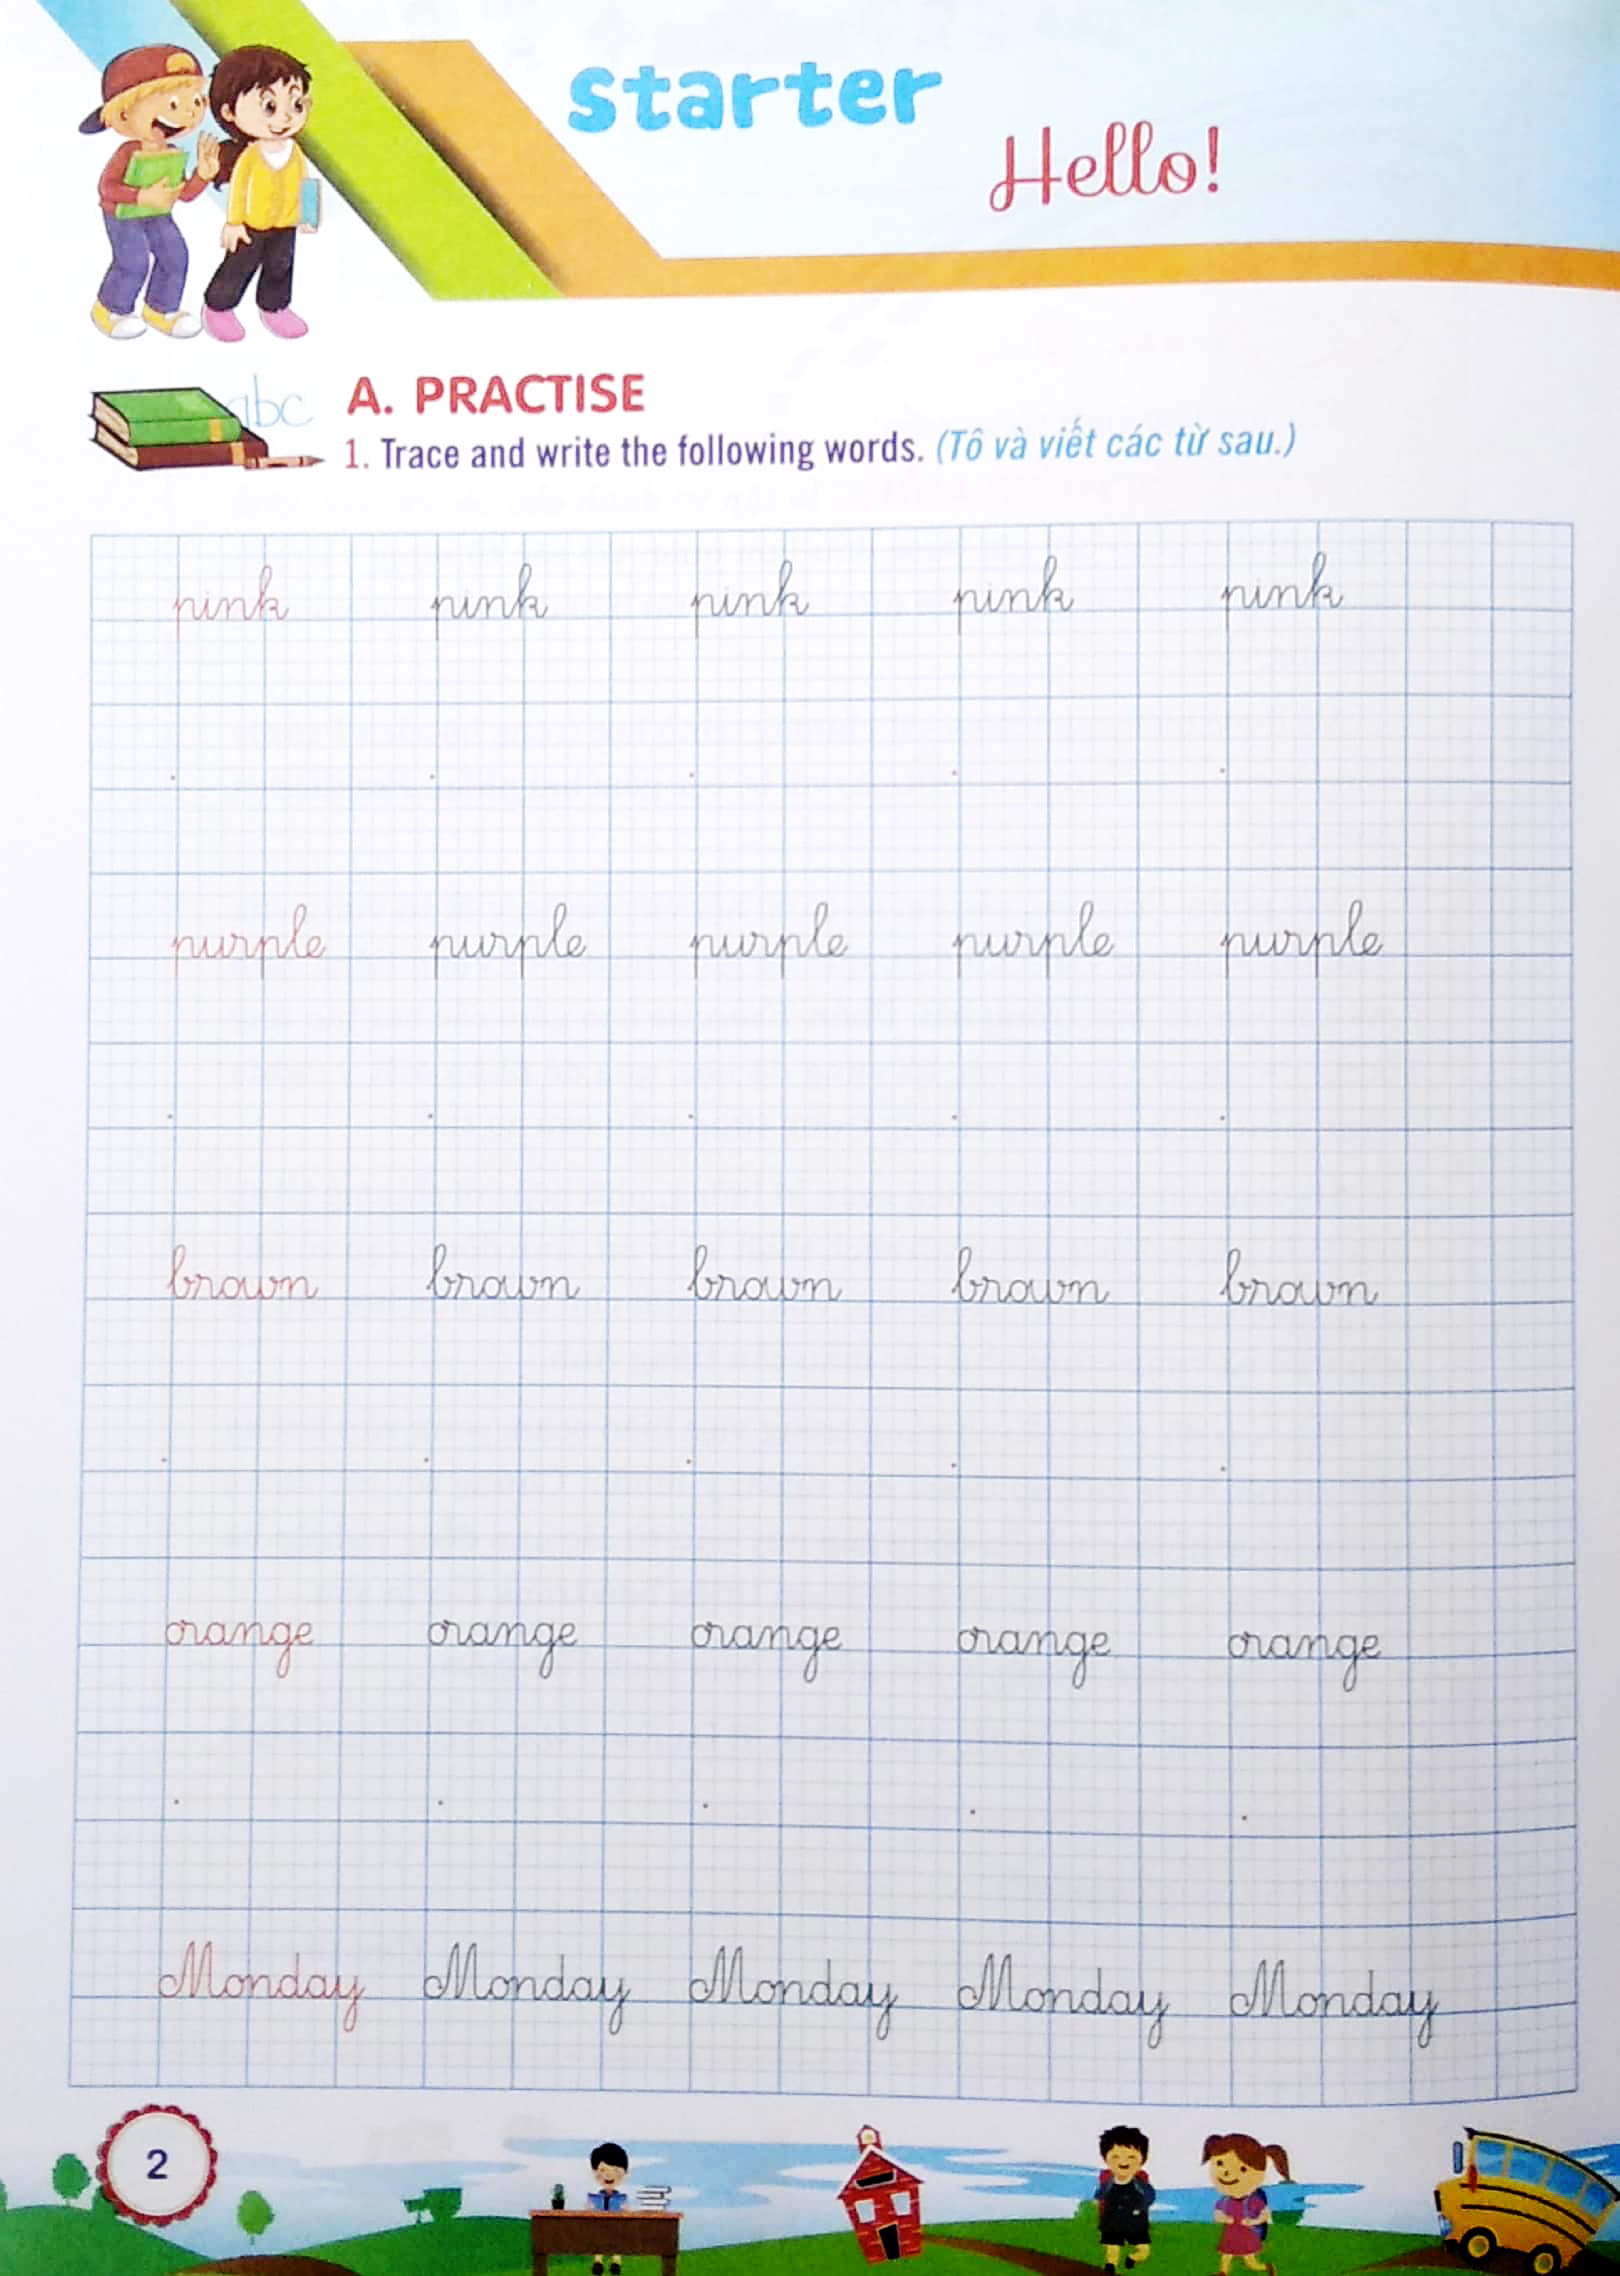 starter
Hello!
abc
A. PRACTISE
1. Trace and write the following words. (Tô và viết các từ sau.)
pink pink pink pink pink
purple purple purple purple purple
brown brown brown brown brown
orange orange orange orange orange
Monday Monday Monday Monday Monday
2